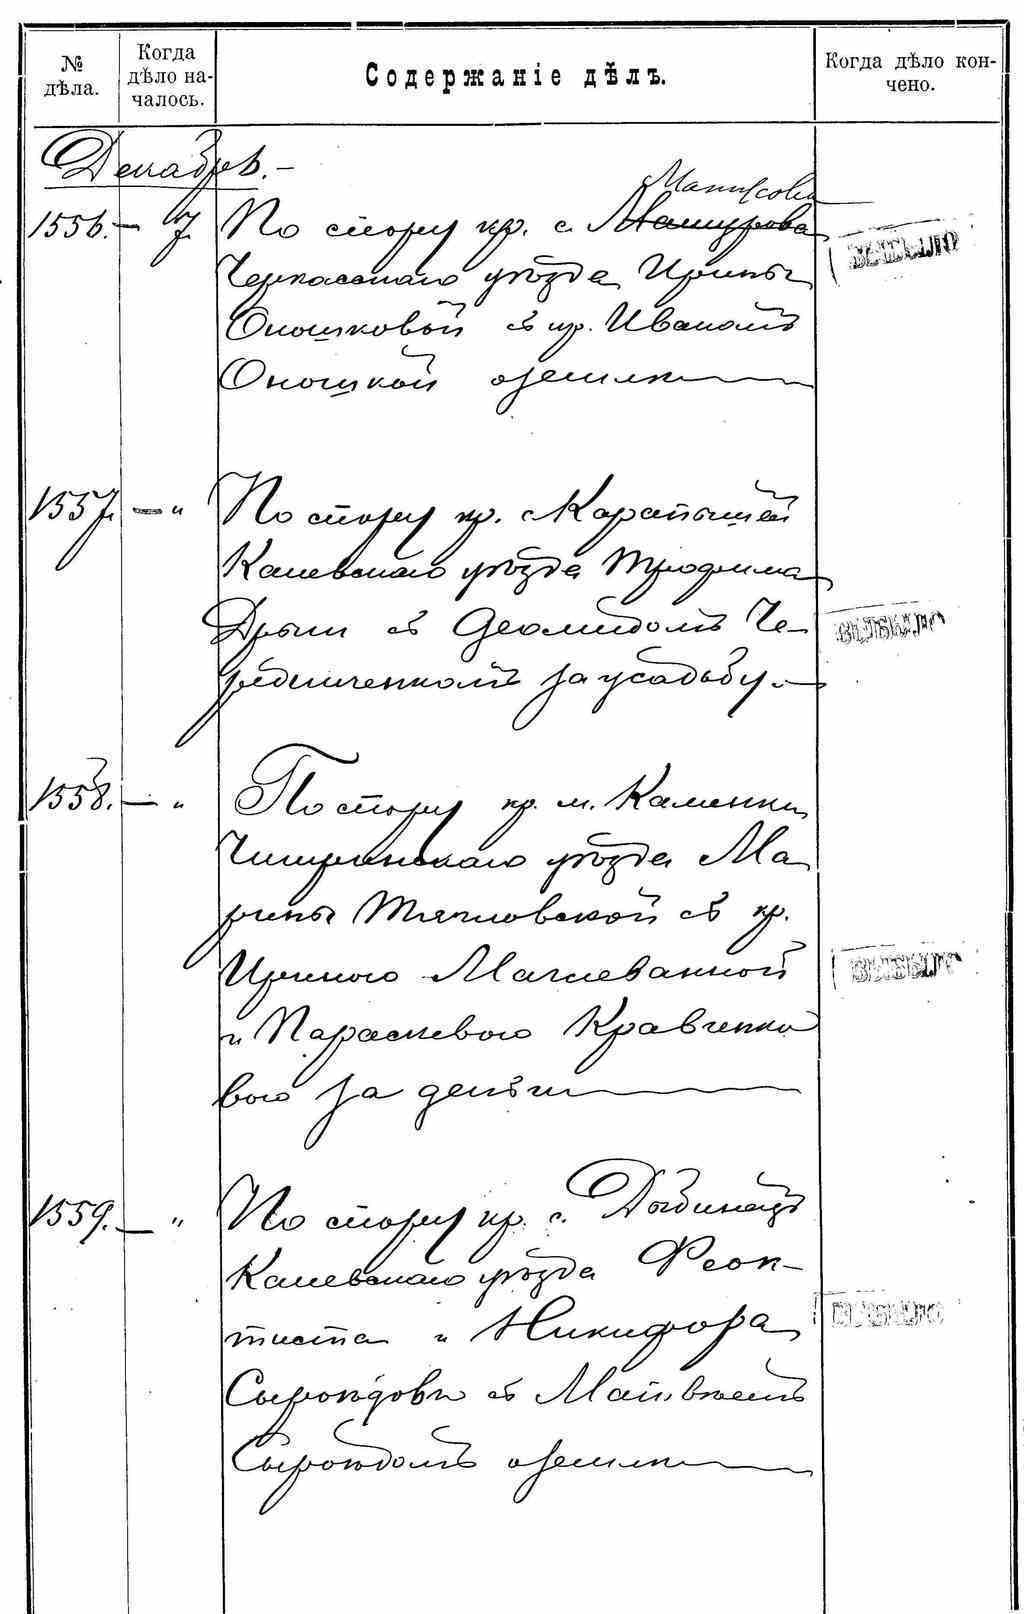 № дѣла.
Когда дѣло на-
чалось.
Содержаніе дѣлъ.
Когда дѣло кон-
чено.
Декабрь.
1556. — 7.
По спору кр. с. Мошурова
Черкасскаго уѣзда Ирины
Оношковой съ кр. Иваномъ
Оношкой о землѣ
ВЫБЫЛО
1557. — "
По спору кр. с Карапышей
Каневскаго уѣзда Трофима
Дрыги съ Діомидомъ Че-
редниченкомъ за усадьбу.
ВЫБЫЛО
1558. — "
По спору кр. м. Каменки
Чигиринскаго уѣзда Ма
рины съ кр.
Ириною
и Параскевою Кравченко
вою за деньги
ВЫБЫЛО
1559. — "
По спору кр. с. Дыбинецъ
Каневскаго уѣзда Феок-
тиста и Никифора
Сыроѣдовъ съ Матвѣемъ
Сыроѣдомъ о землѣ
ВЫБЫЛО